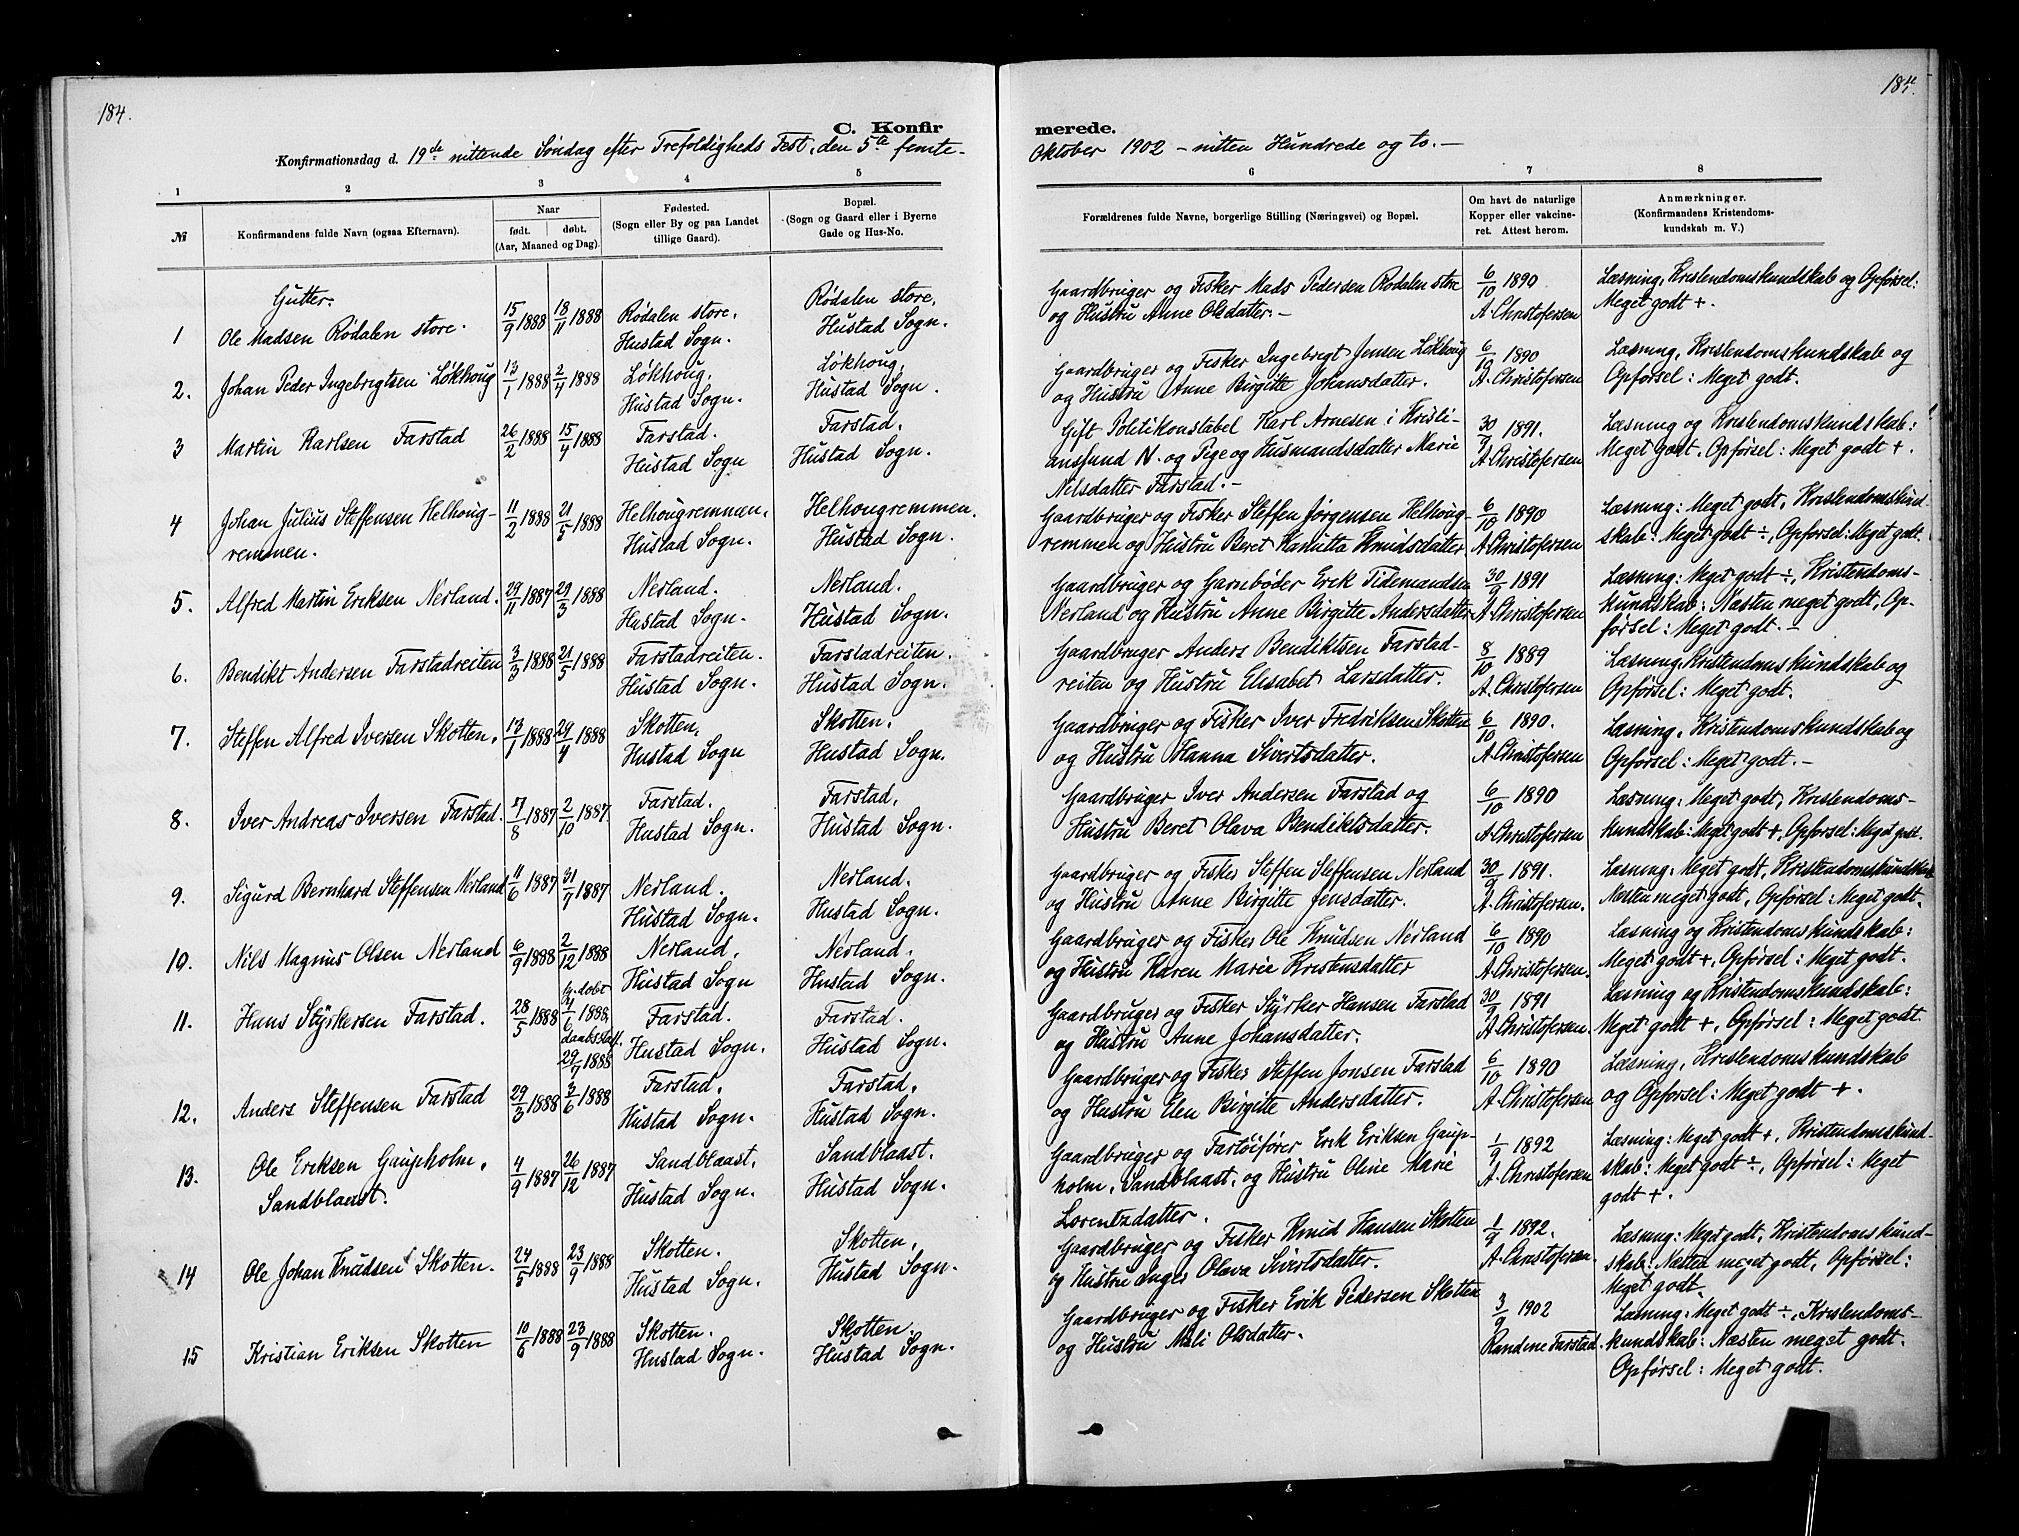 184.
185.
C. Konfirmerede.
Konfirmationsdag d. 19de nittende Søndag efter Trefoldigheds Fest, den 5te femte-
Oktober 1902 – nitten Hundrede og to. –
1 2 3 4 5 6 7 8
№
Konfirmandens fulde Navn (ogsaa Efternavn).
Naar
født. døbt.
(Aar, Maaned og Dag).
Fødested.
(Sogn eller By og paa Landet
tillige Gaard).
Bopæl.
(Sogn og Gaard eller i Byerne
Gade og Hus-No.
Forældrenes fulde Navne, borgerlige Stilling (Næringsvei) og Bopæl.
Om havt de naturlige
Kopper eller vakcine-
ret. Attest herom.
Anmærkninger.
(Konfirmandens Kristendoms-
kundskab m. V.)
Gutter.
1 Ole Madsen Rødalen store. 15/9 1888 18/11 1888 Rødalen store, Hustad Sogn. Rødalen store, Hustad Sogn.
Gaardbruger og Fisker Mads Pedersen Rødalen store
og Hustru Anne Olsdatter. –
6/10 1890
A. Christofersen
Læsning, Kristendomskundskab og Opførsel:
Meget godt +.
2. Johan Peder Ingebrigtsen Løkhoug 13/1 1888 2/4 1888 Løkhoug, Hustad Sogn. Løkhoug, Hustad Sogn.
Gaardbruger og Fisker Ingebrigt Jensen Løkhoug
og Hustru Anne Birgitte Johansdatter.
6/10 1890
A. Christofersen
Læsning, Kristendomskundskab og
Opførsel: Meget godt.
3 Martin Karlsen Farstad 26/2 1888 15/4 1888 Farstad. Hustad Sogn Farstad. Hustad Sogn.
Gift Politikonstabel Karl Arnesen i Kristi-
anssund N. og Pige og Husmandsdatter Marie
Nilsdatter Farstad. –
30/9 1891.
A. Christofersen
Læsning og Kristendomskundskab:
Meget godt, Opførsel: Meget godt +.
4 Johan Julius Steffensen Helhoug-
remmen. 11/2 1888 21/5 1888 Helhougremnan, Hustad Sogn. Helhougremmen. Hustad Sogn.
Gaardbruger og Fisker Steffen Jørgensen Helhoug-
remmen og Hustru Beret Karlutta Knudsdatter
6/10 1890
A. Christofersen
Læsning: Meget godt, Kristendomskund-
skab: Meget godt ÷, Opførsel: Meget godt.
5. Alfred Martin Eriksen Nerland. 29/11 1887 29/3 1888 Nerland. Hustad Sogn. Nerland. Hustad Sogn.
Gaardbruger og Garnbøder Erik Tidemandsen
Nerland og Hustru Anne Birgitte Andersdatter
30/9 1891
A. Christofersen
Læsning: Meget godt ÷, Kristendoms-
kundskab: Næsten meget godt, Op-
førsel: Meget godt. –
6. Bendikt Andersen Farstadreiten 3/3 1888 21/5 1888 Farstadreiten. Hustad Sogn. Farstadreiten. Hustad Sogn.
Gaardbruger Anders Bendiktsen Farstad-
reiten og Hustru Elisabet Larsdatter.
8/10 1889
A. Christofersen
Læsning, Kristendomskundskab og
Opførsel: Meget godt.
7. Steffen Alfred Iversen Skotten. 13/1 1888 29/4 1888 Skotten, Hustad Sogn Skotten. Hustad Sogn.
Gaardbruger og Fisker Iver Fredriksen Skotten
og Hustru Hanna Sivertsdatter.
6/10 1890.
A. Christofersen
Læsning, Kristendomskundskab og
Opførsel: Meget godt. –
8. Iver Andreas Iversen Farstad. 7/8 1887 2/10 1887. Farstad. Hustad Sogn. Farstad. Hustad Sogn.
Gaardbruger Iver Andersen Farstad og
Hustru Beret Olava Bendiktsdatter.
6/10 1890
A. Christofersen
Læsning: Meget godt, Kristendoms-
kundskab: Meget godt +, Opførsel: Meget godt.
9. Sigurd Bernhard Steffensen Nerland 11/6 1887 31/7 1887 Nerland. Hustad Sogn. Nerland. Hustad Sogn.
Gaardbruger og Fisker Steffen Steffensen Nerland
og Hustru Anne Birgitte Jensdatter.
30/9 1891.
A. Christofersen.
Læsning: Meget godt, Kristendomskundskab
Næsten meget godt, Opførsel: Meget godt.
10. Nils Magnus Olsen Nerland 6/9 1888 2/12 1888 Nerland, Hustad Sogn Nerland. Hustad Sogn.
Gaardbruger og Fisker Ole Knudsen Nerland
og Hustru Karen Marie Kristensdatter
6/10 1890
A. Christofersen.
Læsning og Kristendomskundskab:
Meget godt +, Opførsel: Meget godt.
11. Hans Styrkersen Farstad. 28/5 1888 døbt 1/6 1888, daabsstad. 29/7 1888 Farstad. Hustad Sogn. Farstad. Hustad Sogn.
Gaardbruger og Fisker Styrker Hansen Farstad
og Hustru Anne Johansdatter.
30/9 1891
A. Christofersen.
Læsning og Kristendomskundskab:
Meget godt +, Opførsel: Meget godt.
12. Anders Steffensen Farstad 29/3 1888 3/6 1888 Farstad. Hustad Sogn. Farstad. Hustad Sogn.
Gaardbruger og Fisker Steffen Jonsen Farstad
og Hustru Elen Birgitte Andersdatter.
6/10 1890
A. Christofersen
Læsning, Kristendomskundskab
og Opførsel: Meget godt +.
13. Ole Eriksen Gaupholm,
Sandblaast. 4/9 1887 26/12 1887 Sandblaast, Hustad Sogn. Sandblaast. Hustad Sogn.
Gaardbruger og Fartøifører Erik Eriksen Gaup-
holm, Sandblaast, og Hustru Oline Marie
Lorentzdatter.
1/9 1892
A. Christofersen
Læsning: Meget godt +, Kristendomskund-
skab: Meget godt ÷, Opførsel: Meget
godt +.
14 Ole Johan Knudsen Skotten. 24/5 1888 23/9 1888 Skotten. Hustad Sogn. Skotten. Hustad Sogn.
Gaardbruger og Fisker Knud Hansen Skotten
og Hustru Inger Olava Sivertsdatter.
1/9 1892.
A. Christofersen.
Læsning: Meget godt, Kristendomskund-
skab: Næsten meget godt, Opførsel:
Meget godt.
15 Kristian Eriksen Skotten 10/6 1888 23/9 1888 Skotten. Hustad Sogn. Skotten. Hustad Sogn.
Gaardbruger og Fisker Erik Pedersen Skotten
og Hustru Mali Olsdatter.
3/9 1902
Randine Farstad.
Læsning: Meget godt ÷, Kristendoms-
kundskab: Næsten meget godt.
Opførsel: Meget godt.